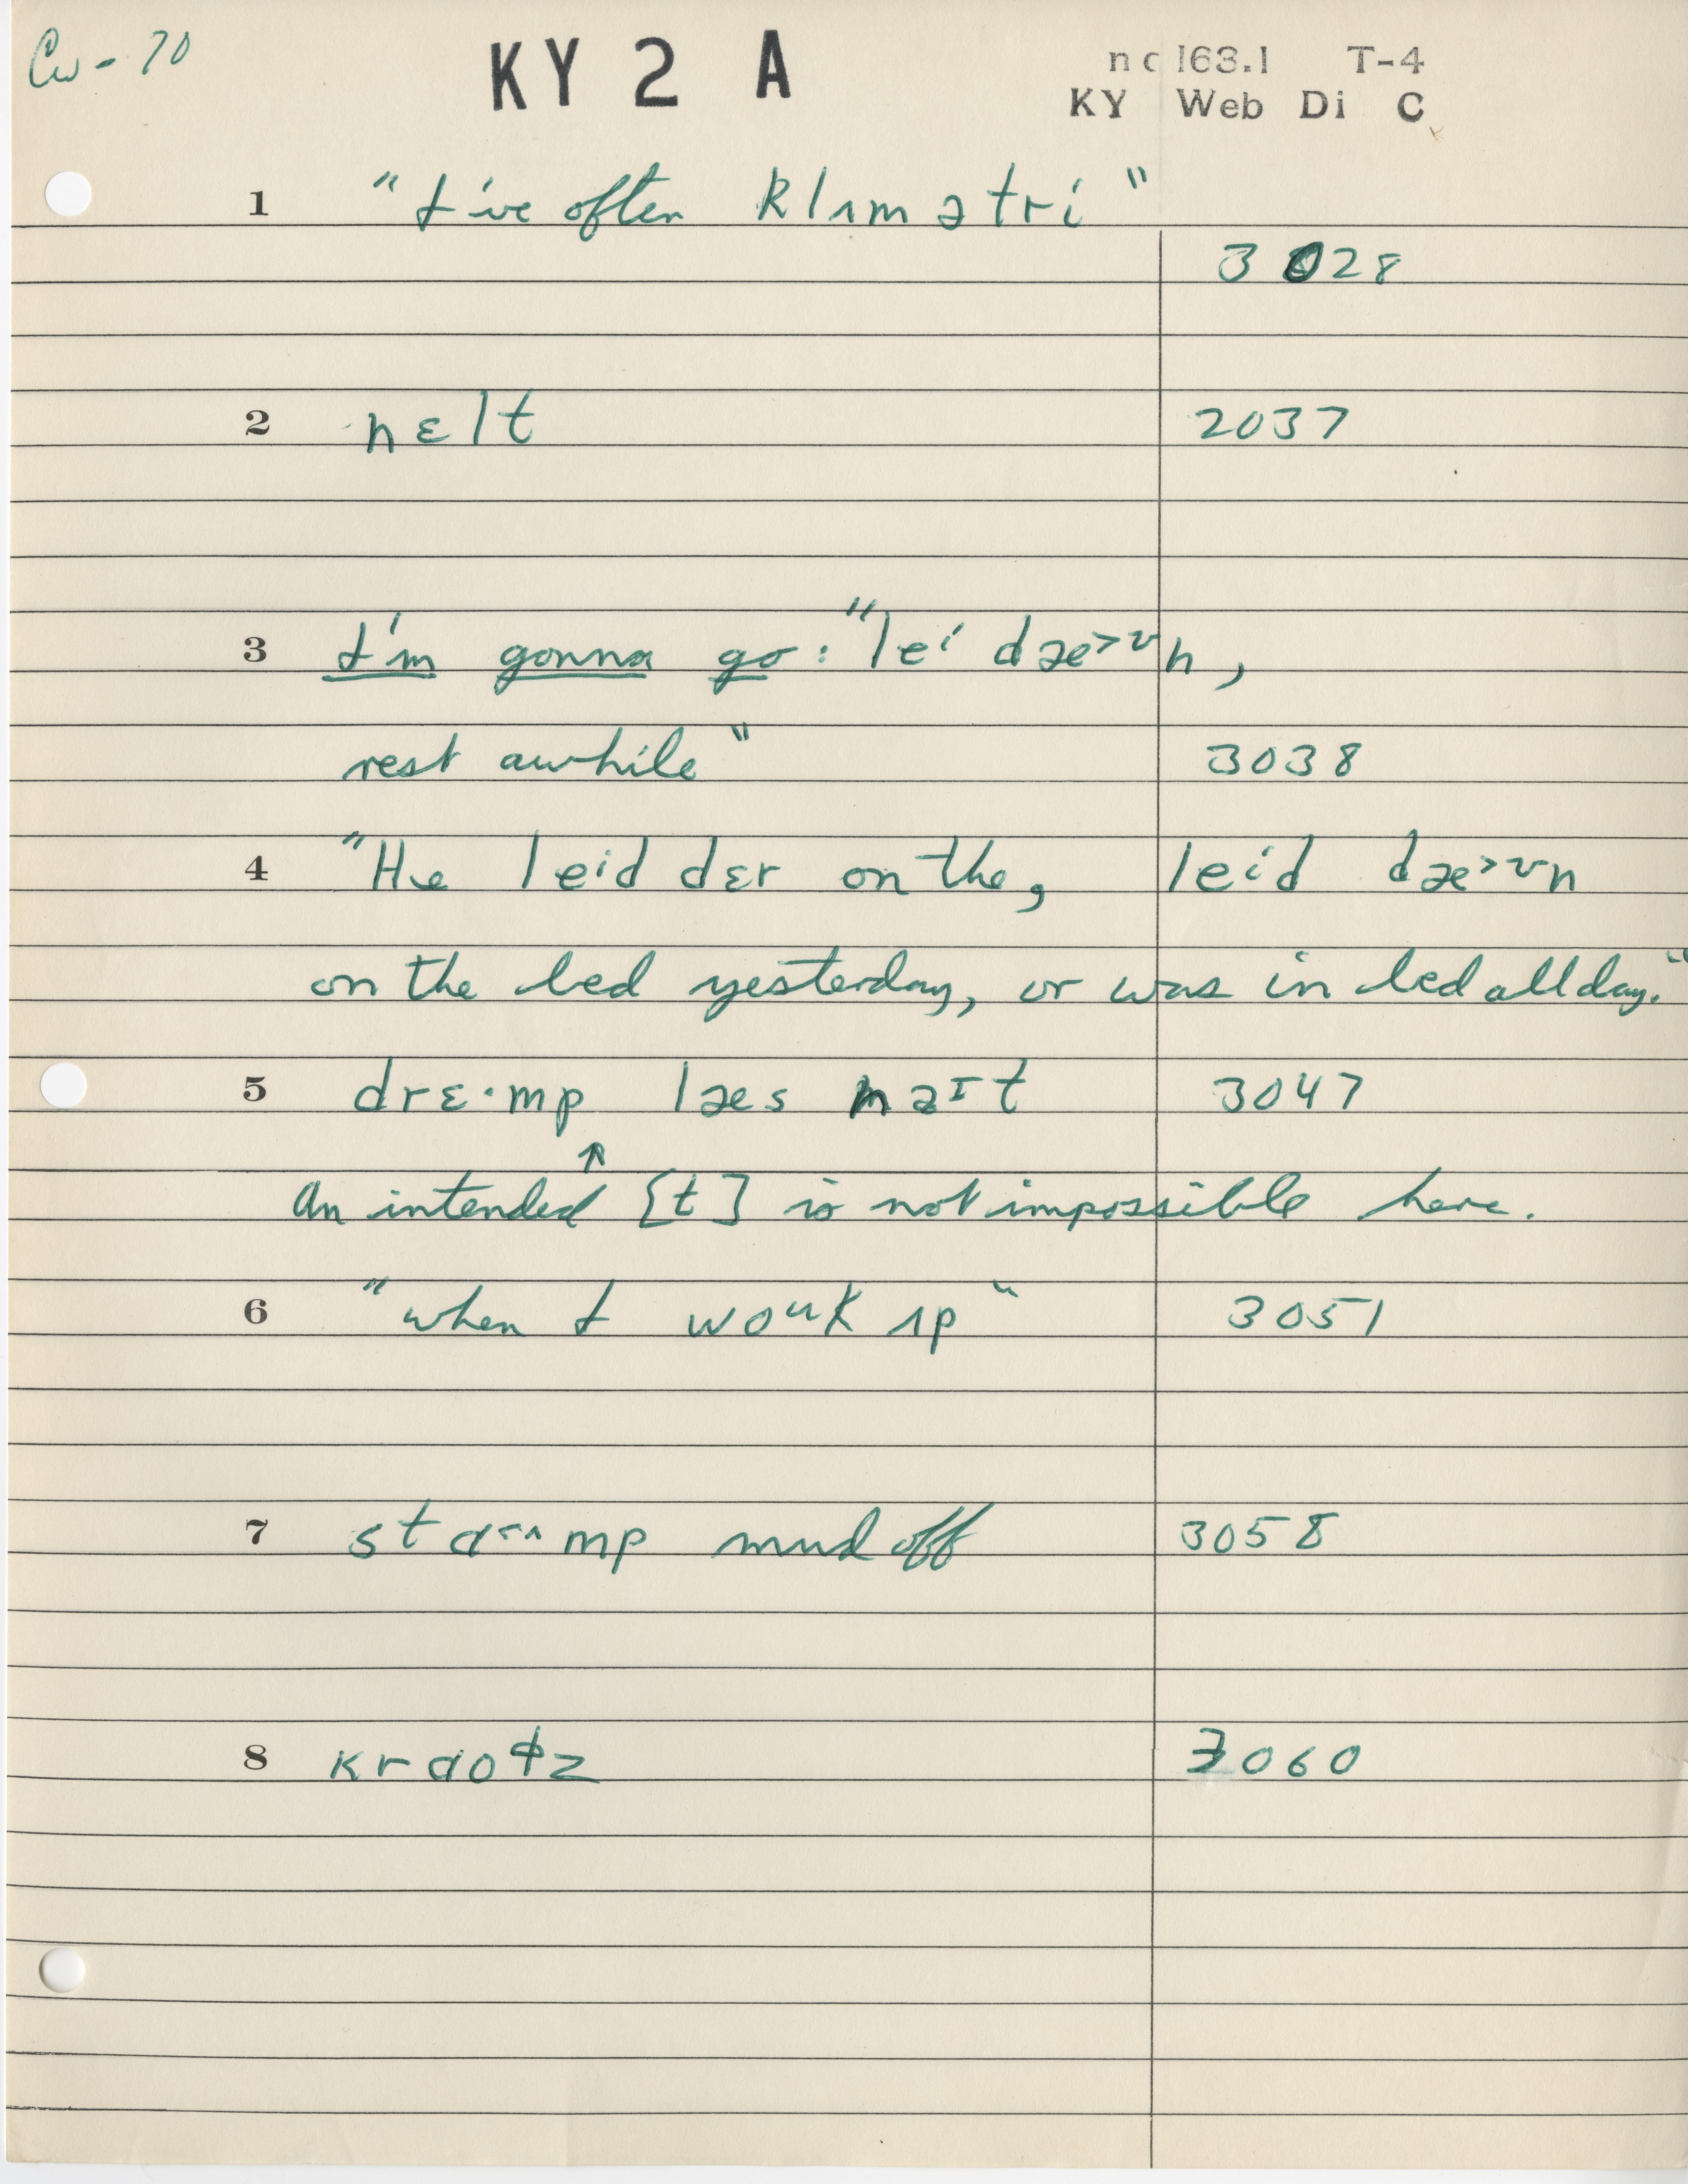 Cw - 70
KY 2 A
nc 163.1 T-4
KY Web Di C
1 "I've often klɪm ə tri"
3028
2 nɛlt 2037
3 I'm gonna go: "lei dæ>ʊn,
rest awhile" 3038
4 "He leid dɛr on the, leid dæ>ʊn
on the bed yesterday, or was in bed all day."
5 drɛ·mp læs naɪt 3047
↑
An intended [t] is not impossible here.
6 "when I wouk ʌp" 3051
7 mp mud off 3058
8 3060